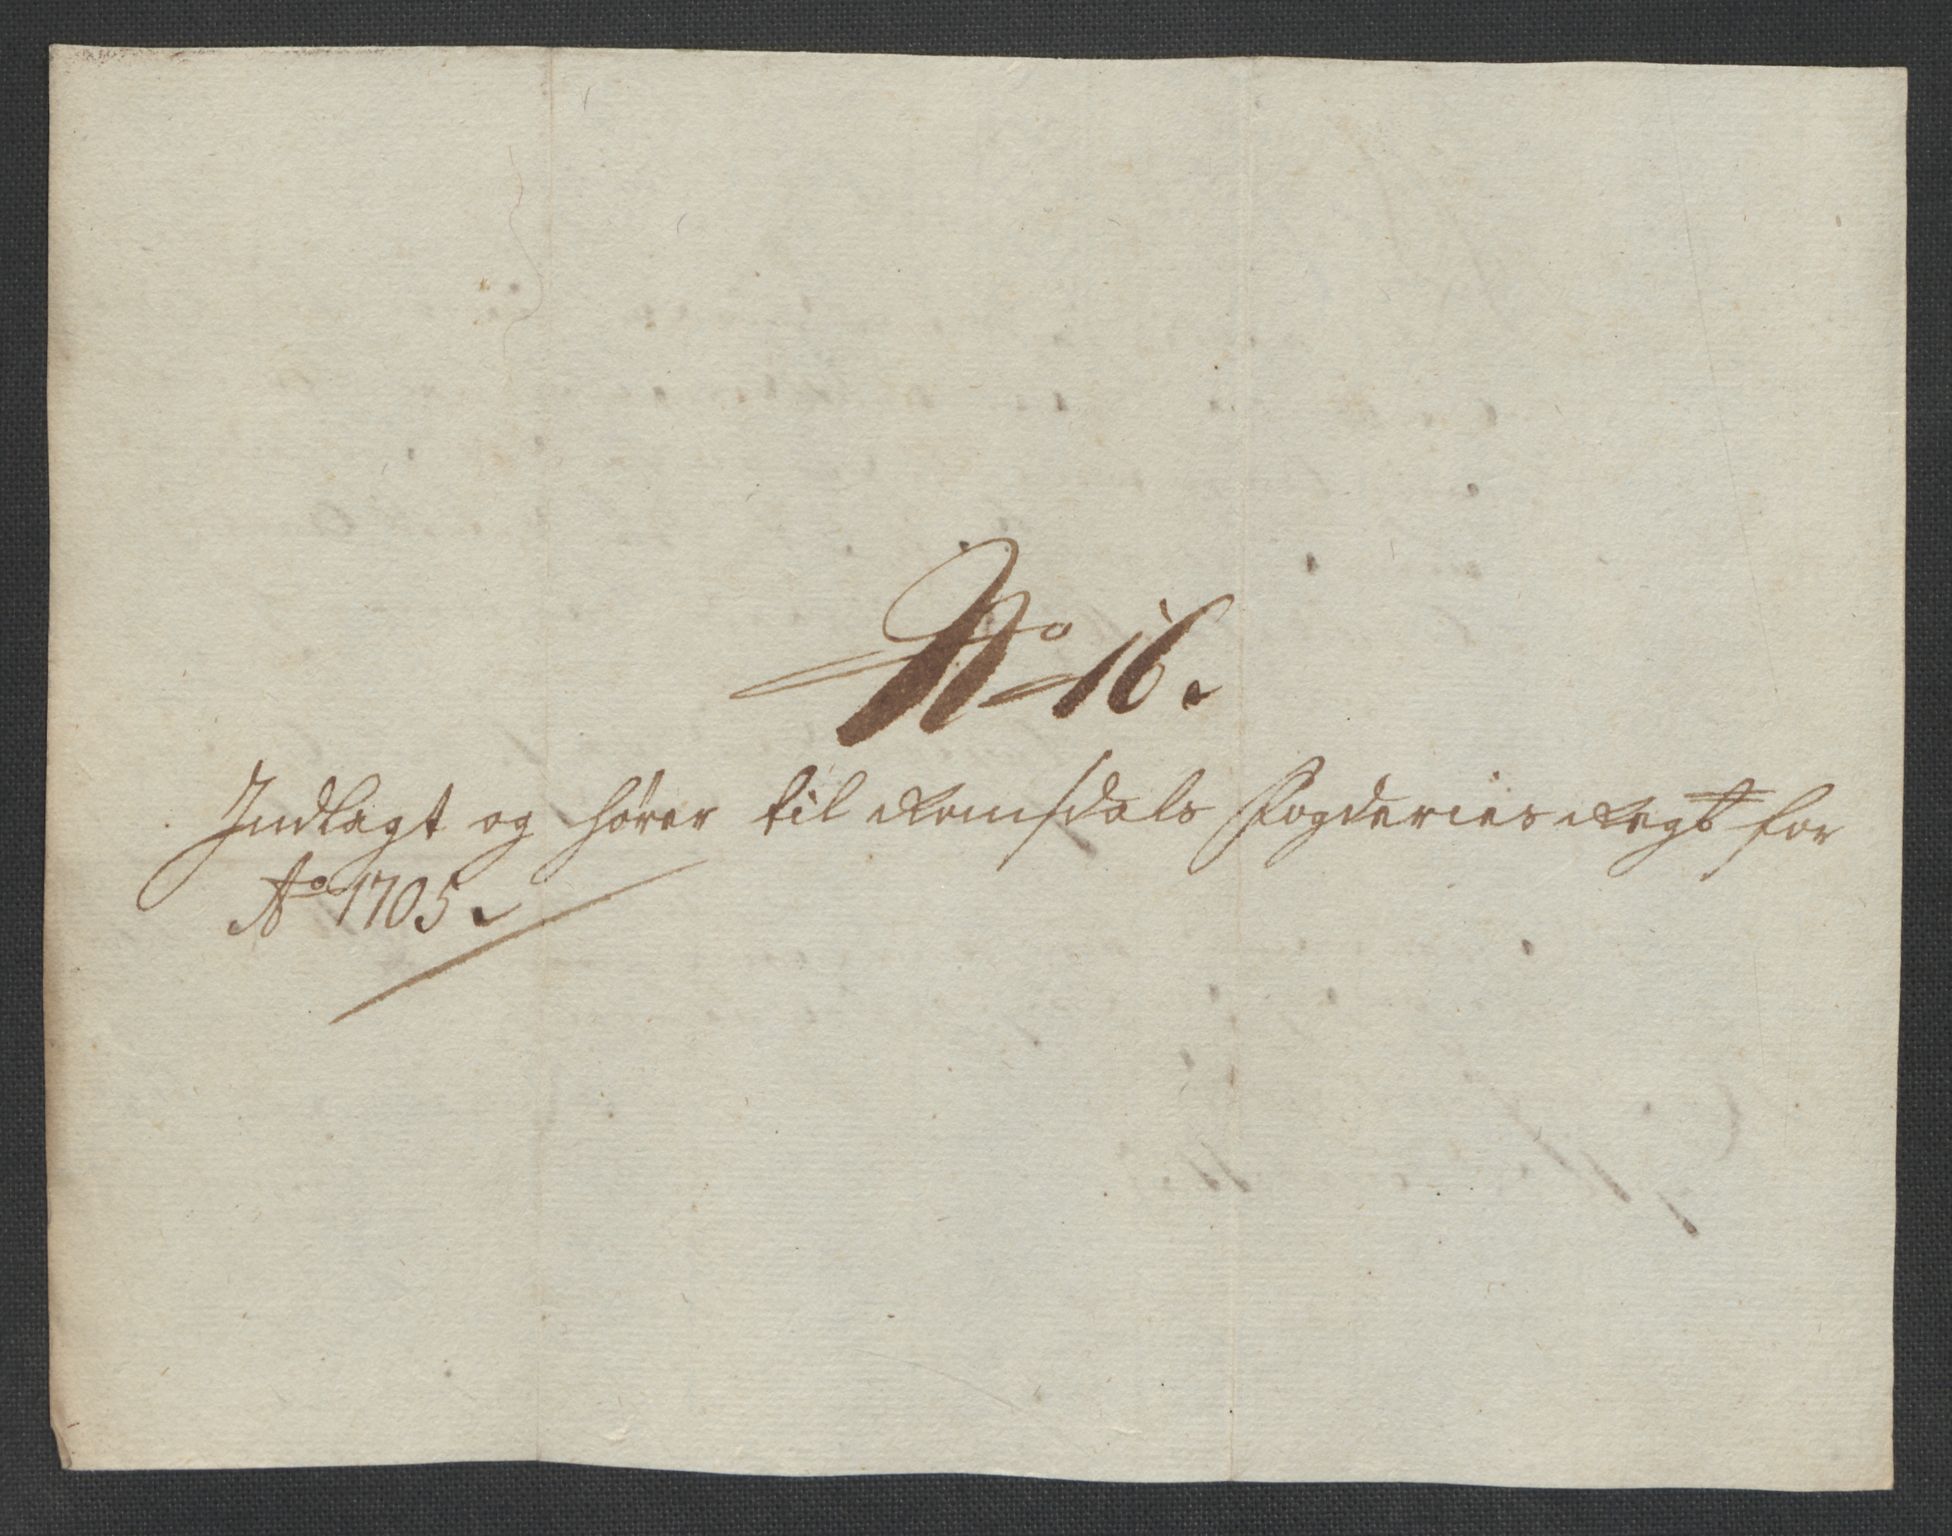 No 16.
Indlagt og hörer til Romsdals Fogderies Regb for
Ao 1705.